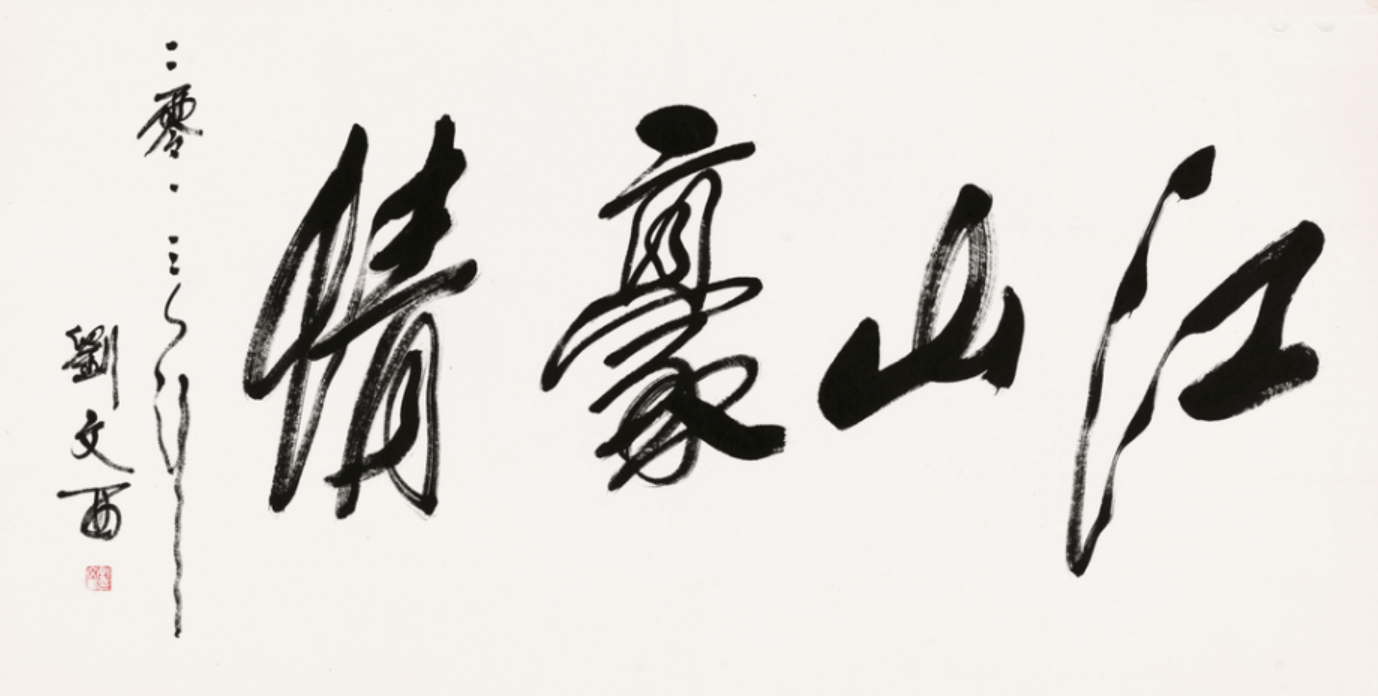 江山豪情
二零一三年
劉文西